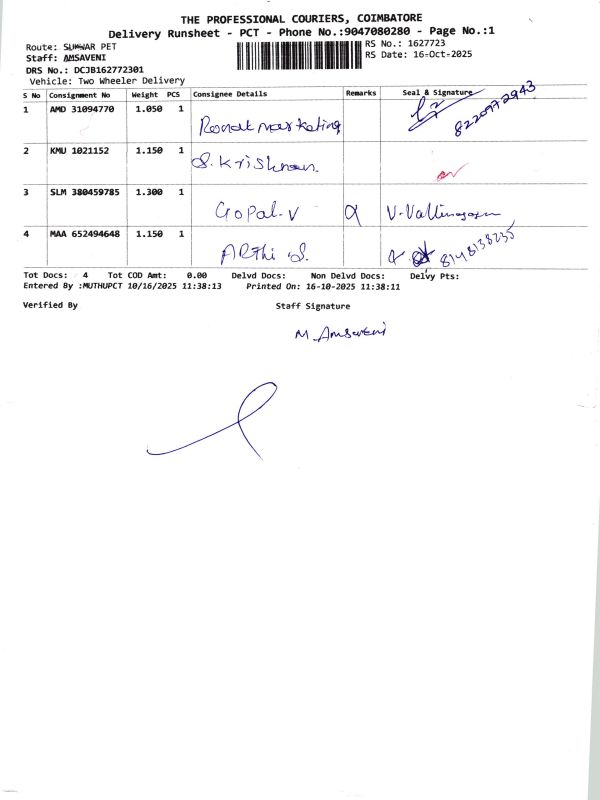 THE PROFESSIONAL COURIERS, COIMBATORE
Delivery Runsheet - PCT - Phone No.:9047080280 - Page No.:1
Route: SUNWAR PET
RS No.: 1627723
Staff: AMSAVENI
RS Date: 16-Oct-2025
DRS No.: DCJB162772301
Vehicle: Two Wheeler Delivery
S No Consignment No Weight PCS Consignee Details Remarks Seal & Signature
1 AMD 31094770 1.050 1 marketing 8220972943
2 KMU 1021152 1.150 1 S. Krishnan.
3 SLM 380459785 1.300 1 Gopal.V V.Vallinayagam
4 MAA 652494648 1.150 1 ARthi S. 8148138235
Tot Docs: 4 Tot COD Amt: 0.00 Delvd Docs: Non Delvd Docs: Delvy Pts:
Entered By :MUTHUPCT 10/16/2025 11:38:13 Printed On: 16-10-2025 11:38:11
Verified By Staff Signature
M. Amsaveni